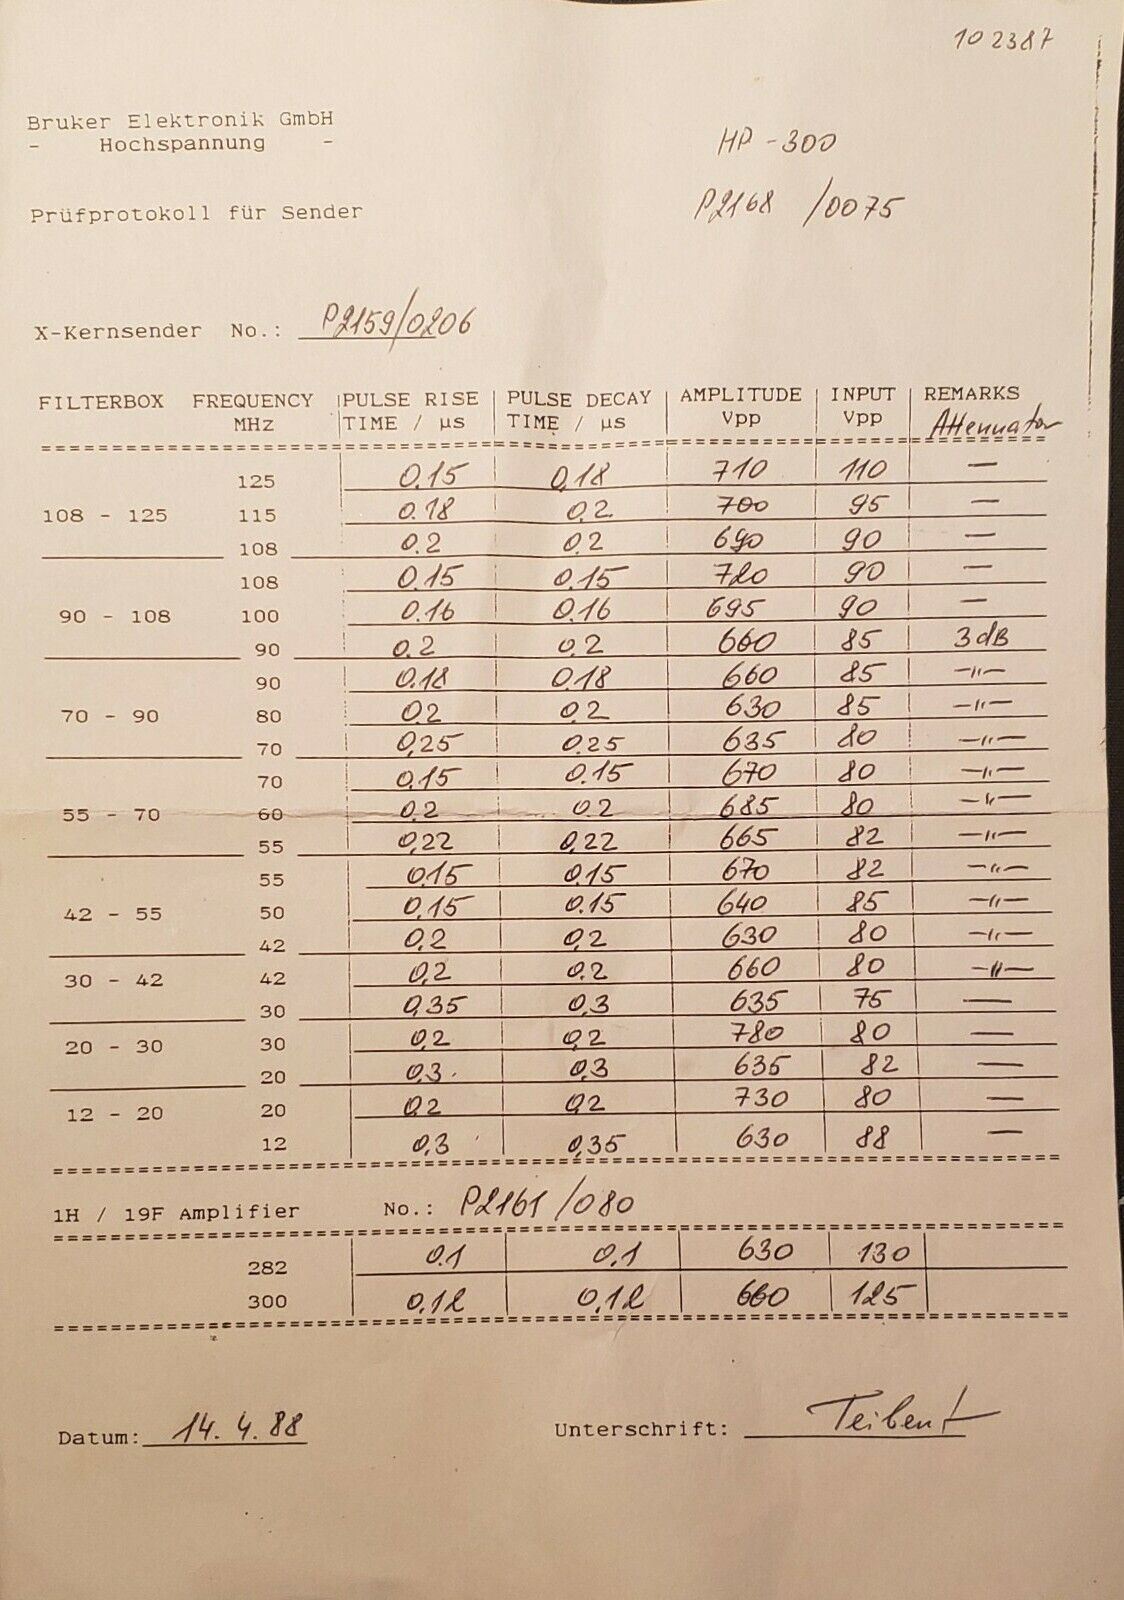 102387
Bruker Elektronik GmbH
- Hochspannung -
HP-300
Prüfprotokoll für Sender
P2168 /0075
X-Kernsender No.: P2159/0206
FILTERBOX FREQUENCY PULSE RISE PULSE DECAY AMPLITUDE INPUT REMARKS
MHz TIME / µs TIME / µs Vpp Vpp Attenuator
125 0.15 0,18 710 110 —
108 - 125 115 0.18 0,2 700 95 —
108 0.2 0,2 690 90 —
108 0.15 0.15 720 90 —
90 - 108 100 0.16 0.16 695 90 —
90 0.2 0.2 660 85 3dB
90 0.18 0.18 660 85 —"—
70 - 90 80 0.2 0.2 630 85 —"—
70 0,25 0.25 635 80 —"—
70 0.15 0.15 670 80 —"—
55 - 70 60 0.2 0.2 685 80 —"—
55 0,22 0,22 665 82 —"—
55 0.15 0.15 670 82 —"—
42 - 55 50 0.15 0.15 640 85 —"—
42 0,2 0,2 630 80 —"—
30 - 42 42 0,2 0.2 660 80 —"—
30 0,35 0,3 635 75 —
20 - 30 30 0,2 0,2 780 80 —
20 0,3 0,3 635 82 —
12 - 20 20 0,2 0,2 730 80 —
12 0,3 0,35 630 88 —
1H / 19F Amplifier No.: P2161/080
282 0.1 0,1 630 130
300 0,12 0,12 660 125
Datum: 14.4.88 Unterschrift: